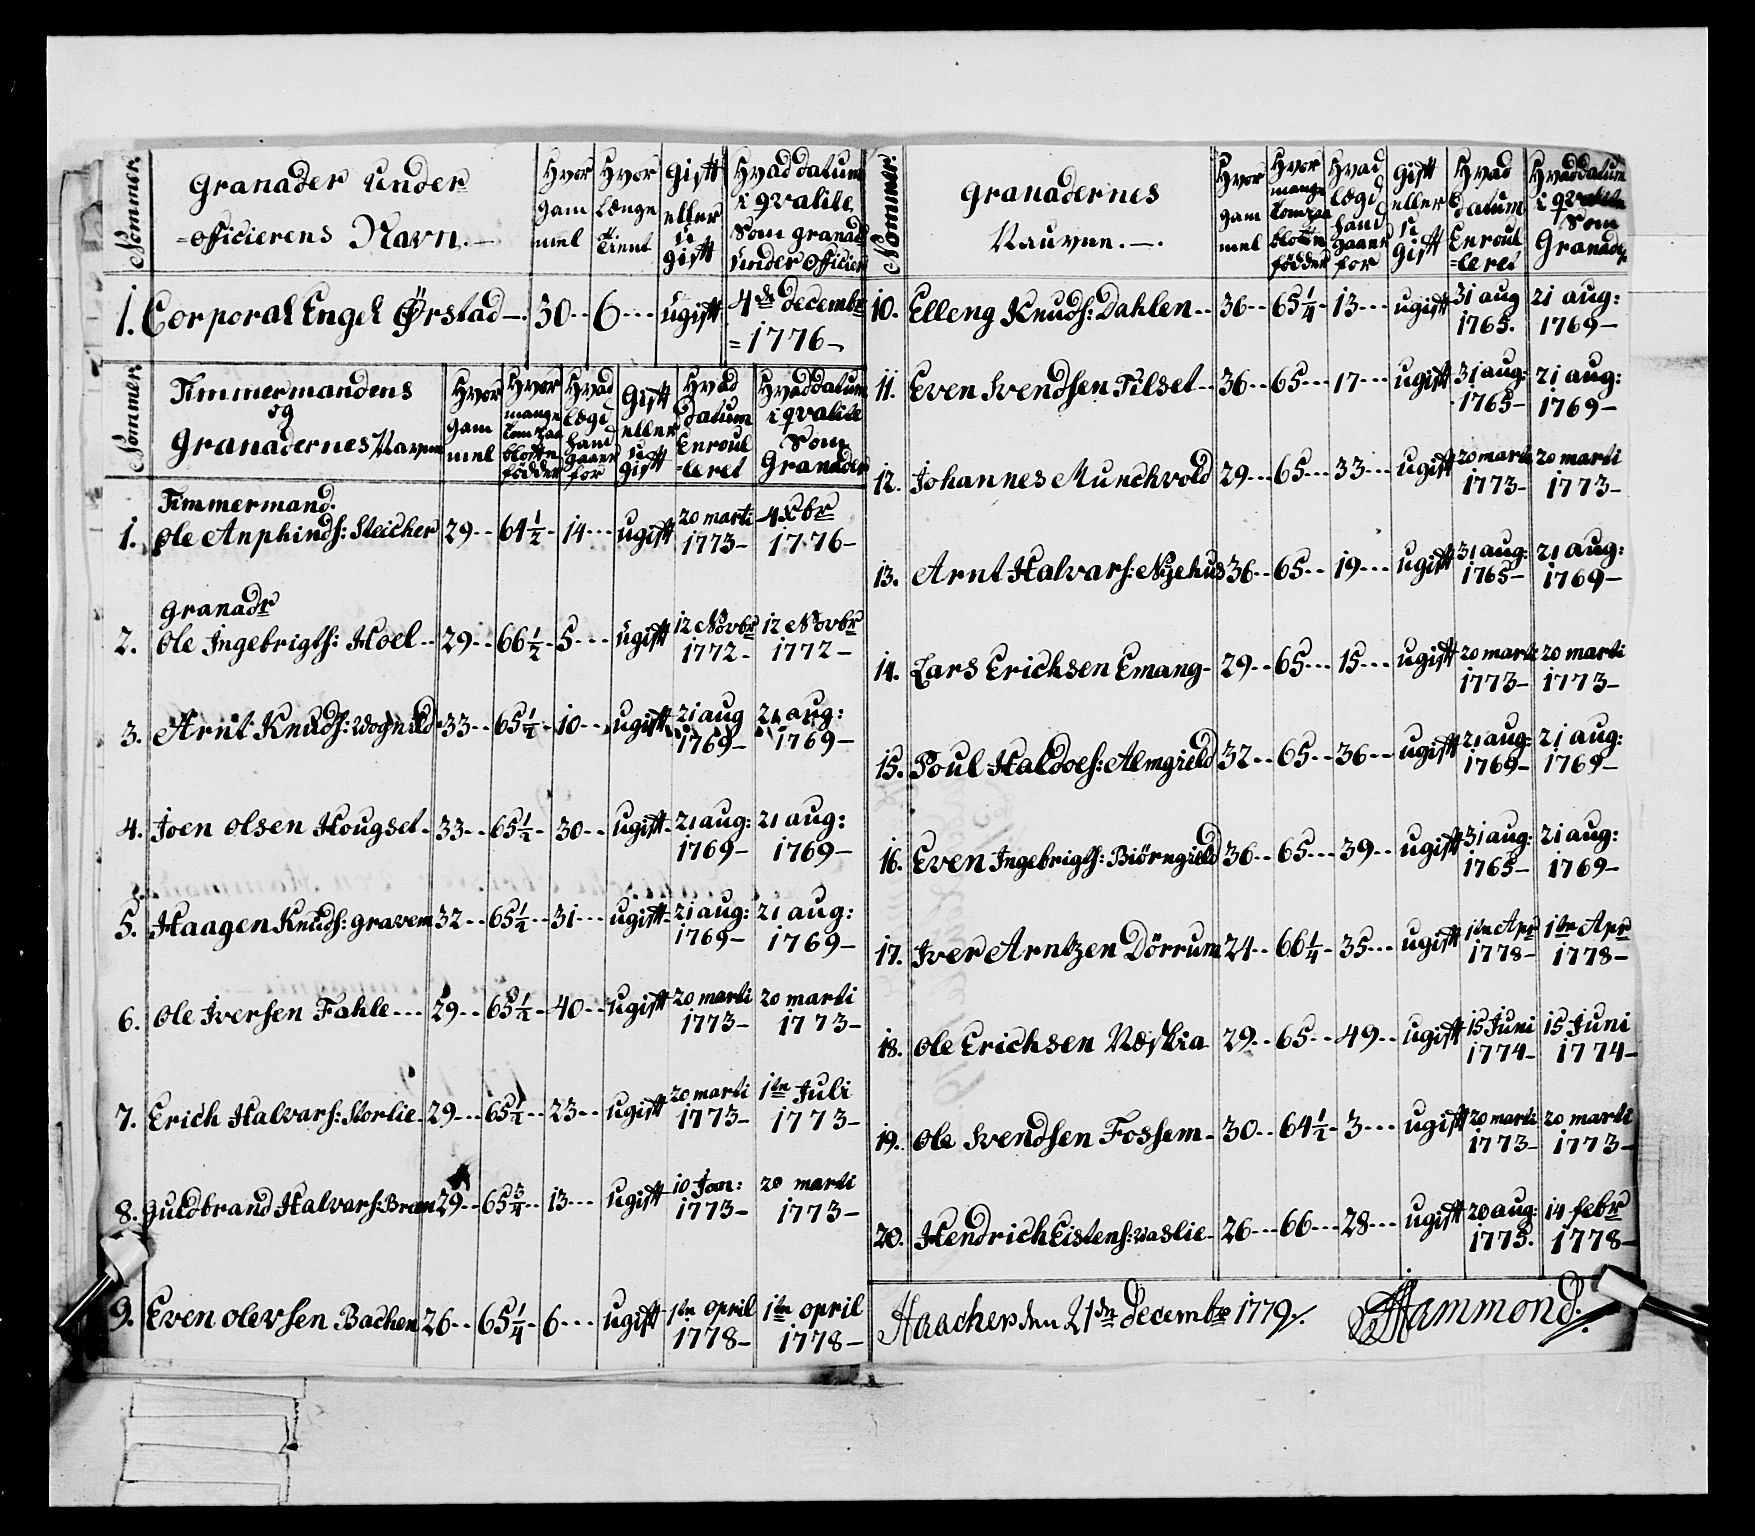 Nommer. Granader Under =officierens Navn. — Hvor gam mel Hvor længe tient gift eller u gift Hvad datum i qvalite som granad under officier
1. Corporal Engel Örstad —. 30 -- 6 --- ugift 4de decembr = 1776 —
Nommer. Timmermandens og Granadernes Navne Hvor gam mel Hvor mange tom paa blotte födder Hvad lægd hand gaaer for Gift eller u gift Hvad datum Enroul =leret Hvad datum i qvalite som Granader
Timmermand.
1. Ole Anphinds: Sleicher 29 -- 64 1/2 - 14 --- ugift 20 marti 1773 — 4 Xbr 1776 —
Granadr
2. Ole Ingebrigts: Hoel -- 29 -- 66 1/2 - 5 --- ugift 12 Novbr 1772 — 12 Novbr 1772 —
3. Arnt Knuds: Wognild 33 -- 65 1/2 - 10 -- ugift 21 aug 1769 — 21 aug: 1769 —
4. Joen Olsen Hougset - 33 -- 65 1/2 - 30 -- ugift - 21 aug: 1769 — 21 aug: 1769 —
5. Haagen Knuds: Gravem 32 -- 65 1/2 -- 31 --- ugift - 21 aug: 1769 — 21 aug: 1769 —
6. Ole Iversen Fahle --- 29 -- 65 1/2 - 40 -- ugift 20 marti 1773 — 20 marti 1773 —
7. Erich Halvars: Storlie - 29 --- 65 1/2 -- 23 -- ugift 20 marti 1773 — 1tn Juli 1773 —
8. Guldbrand Halvars: Bram 29 -- 65 3/4 -- 13 --- ugift 10 Jan: 1773 — 20 marti 1773 —
9. Even Olevsen Bachen 26 -- 65 1/4 - 6 --- ugift 1tn april 1778 — 1tn april 1778 —
Nommer. Granadernes Nauvne. —. Hvor gam mel Hvor mange tom paa blotte födder Hvad lægd hand gaaer for gift eller u gift Hvad datum Enroul =leret Hvad datum i qvalite som Granader
10. Elleng Knuds: Dahlen -- 36 -- 65 1/4 - 13 --- ugift 31 aug 1765. 21 aug: 1769 —
11. Even Svendsen Tilset -- 36 -- 65 --- 17 --- ugift 31 aug: 1765 — 21 aug: 1769 —
12. Johannes Munchvold 29 --- 65 --- 33 --- ugift 20 marti 1773 — 20 marti 1773 —
13. Arnt Halvars: Nyehus 36 -- 65 -- 19 --- ugift 31 aug: 1765 — 21 aug: 1769 —
14. Lars Erichsen Emang - 29 -- 65 --- 15 --- ugift 20 marti 1773 — 20 marti 1773 —
15. Poul Haldoes: Almgield 32 -- 65 -- 36 --- ugift 21 aug: 1769 — 21 aug: 1769 —
16. Even Ingebrigts: Biörngield 36 -- 65 --- 39 -- ugift 31 aug: 1765 — 21 aug: 1769 —
17. Iver Arntzen Dörrum 24 -- 66 1/4 - 35 --- ugift 1tn Apr 1778 — 1tn Apr 1778 —
18. Ole Erichsen Næslia 29 -- 65 -- 49 -- ugift 15 Juni 1774 — 15 Juni 1774 —
19. Ole Svendsen Fossem - 30 -- 64 1/2 - 3 --- ugift 20 marti 1773 — 20 marti 1773 —
20. Hendrich Eistens: Waslie - 26 --- 66 --- 28 --- ugift 20 aug: 1775. 14 febr 1778 —
Haacher den 21dn decembr 1779 /. Hammond.